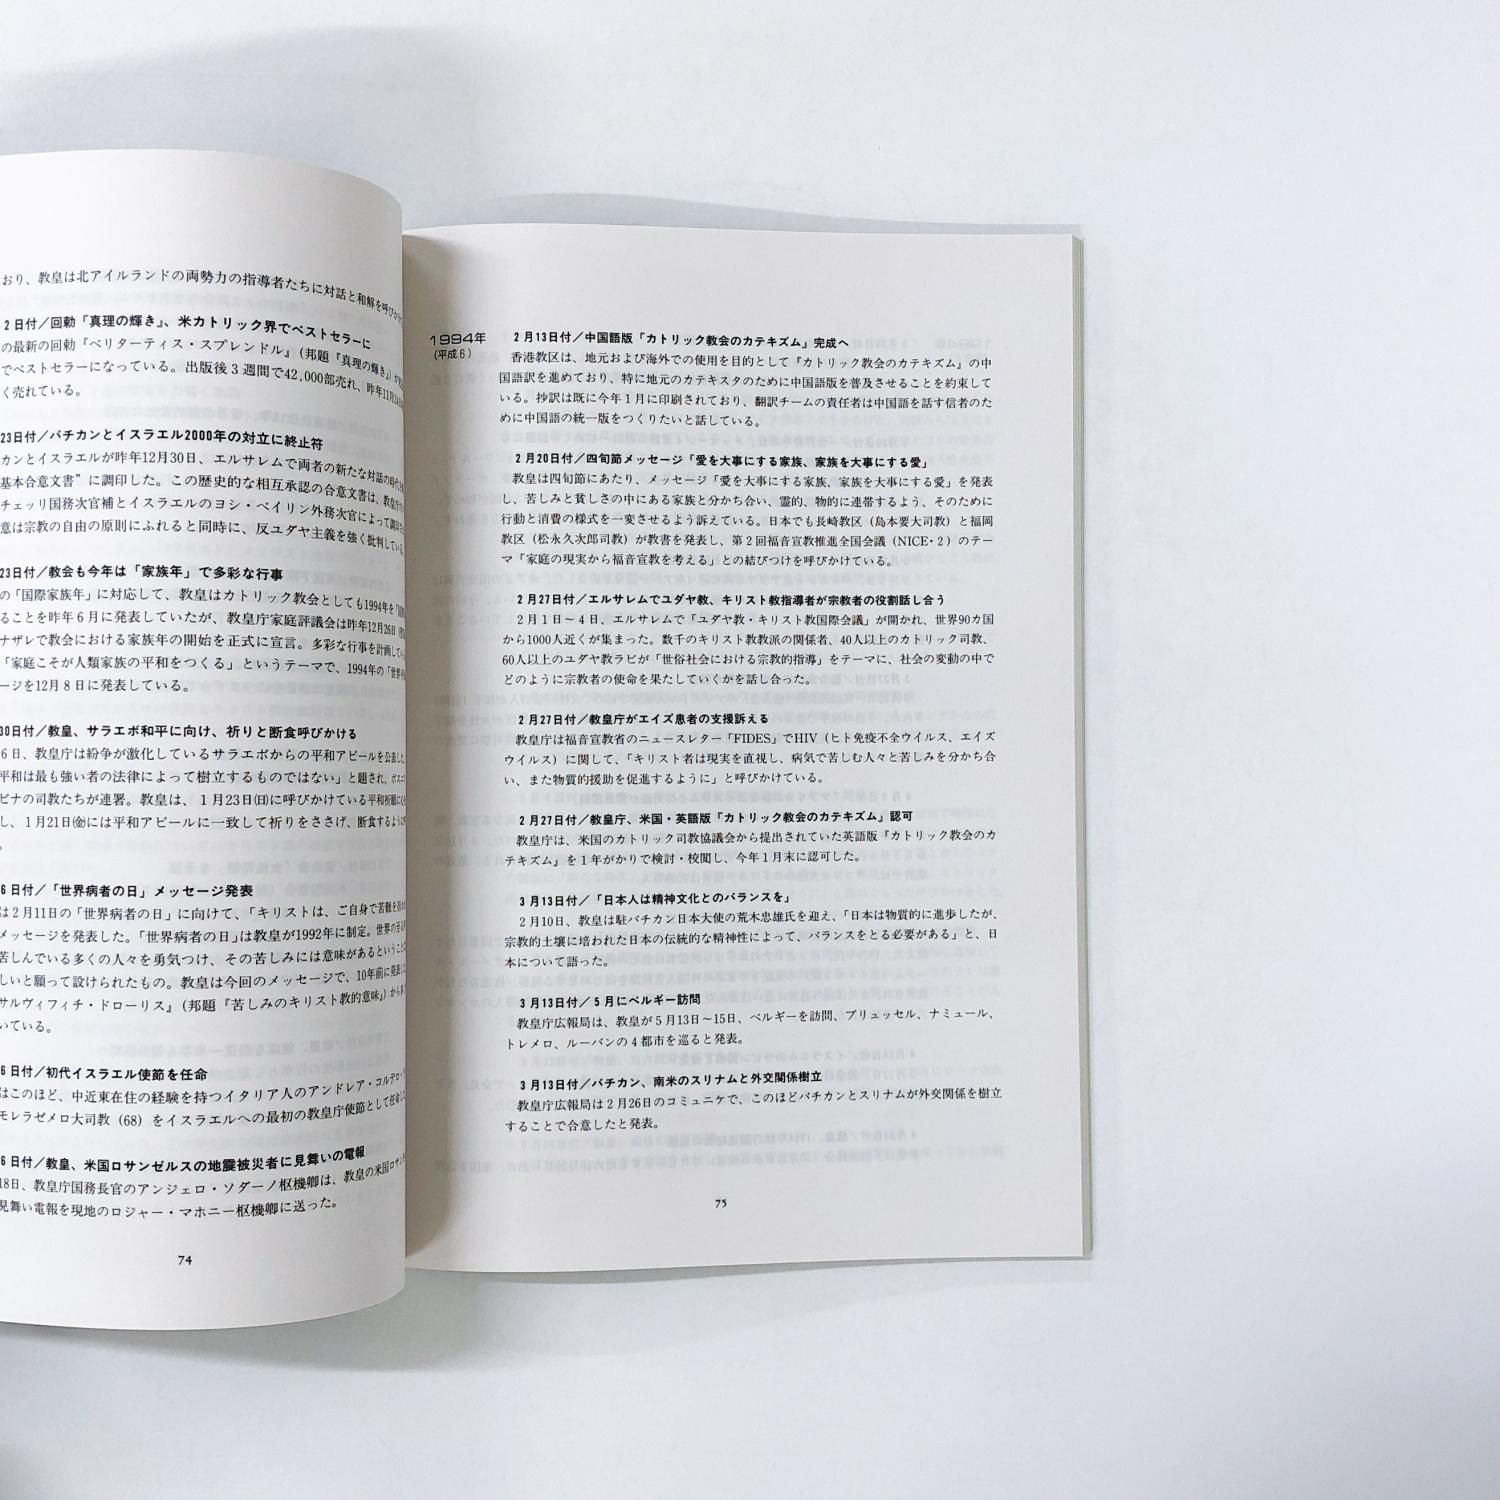 おり、教皇は北アイルランドの両勢力の指導者たちに対話と和解を呼びか
2日付/回勅『真理の輝き』、米カトリック界でベストセラーに
の最新の回勅『ベリターティス・スプレンドル』(邦題『真理の輝き』)が
でベストセラーになっている。出版後3週間で42,000部売れ、昨年11月
く売れている。
23日付/バチカンとイスラエル2000年の対立に終止符
カンとイスラエルが昨年12月30日、エルサレムで両者の新たな対話の時代を
基本合意文書”に調印した。この歴史的な相互承認の合意文書は、教皇庁の
チェッリ国務次官補とイスラエルのヨシ・ベイリン外務次官によって調印
意は宗教の自由の原則にふれると同時に、反ユダヤ主義を強く批判している
23日付/教会も今年は「家族年」で多彩な行事
の「国際家族年」に対応して、教皇はカトリック教会としても1994年を
ることを昨年6月に発表していたが、教皇庁家庭評議会は昨年12月26日
ナザレで教会における家族年の開始を正式に宣言。多彩な行事を計画して
「家庭こそが人類家族の平和をつくる」というテーマで、1994年の「世界平
ージを12月8日に発表している。
30日付/教皇、サラエボ和平に向け、祈りと断食呼びかける
6日、教皇庁は紛争が激化しているサラエボからの平和アピールを公表した
平和は最も強い者の法律によって樹立するものではない」と題され、ボスニ
ビナの司教たちが連署。教皇は、1月23日(日)に呼びかけている平和祈願に
し、1月21日(金)には平和アピールに一致して祈りをささげ、断食するように
。
6日付/「世界病者の日」メッセージ発表
は2月11日の「世界病者の日」に向けて、「キリストは、ご自身で苦難を
メッセージを発表した。「世界病者の日」は教皇が1992年に制定。世界の
苦しんでいる多くの人々を勇気つけ、その苦しみには意味があるということ
しいと願って設けられたもの。教皇は今回のメッセージで、10年前に発表し
サルヴィフィチ・ドローリス』(邦題『苦しみのキリスト教的意味』)から
いている。
6日付/初代イスラエル使節を任命
はこのほど、中近東在住の経験を持つイタリア人のアンドレア・コルデロ・
モレラゼメロ大司教(68)をイスラエルへの最初の教皇庁使節として任命し
6日付/教皇、米国ロサンゼルスの地震被災者に見舞いの電報
18日、教皇庁国務長官のアンジェロ・ソダーノ枢機卿は、教皇の米国ロサン
見舞い電報を現地のロジャー・マホニー枢機卿に送った。
74
1994年
(平成6)
2月13日付/中国語版『カトリック教会のカテキズム』完成へ
香港教区は、地元および海外での使用を目的として『カトリック教会のカテキズム』の中
国語訳を進めており、特に地元のカテキスタのために中国語版を普及させることを約束して
いる。抄訳は既に今年1月に印刷されており、翻訳チームの責任者は中国語を話す信者のた
めに中国語の統一版をつくりたいと話している。
2月20日付/四旬節メッセージ「愛を大事にする家族、家族を大事にする愛」
教皇は四旬節にあたり、メッセージ「愛を大事にする家族、家族を大事にする愛」を発表
し、苦しみと貧しさの中にある家族と分かち合い、霊的、物的に連帯するよう、そのために
行動と消費の様式を一変させるよう訴えている。日本でも長崎教区(島本要大司教)と福岡
教区(松永久次郎司教)が教書を発表し、第2回福音宣教推進全国会議(NICE・2)のテー
マ「家庭の現実から福音宣教を考える」との結びつけを呼びかけている。
2月27日付/エルサレムでユダヤ教、キリスト教指導者が宗教者の役割話し合う
2月1日~4日、エルサレムで「ユダヤ教・キリスト教国際会議」が開かれ、世界90カ国
から1000人近くが集まった。数千のキリスト教教派の関係者、40人以上のカトリック司教、
60人以上のユダヤ教ラビが「世俗社会における宗教的指導」をテーマに、社会の変動の中で
どのように宗教者の使命を果たしていくかを話し合った。
2月27日付/教皇庁がエイズ患者の支援訴える
教皇庁は福音宣教省のニュースレター「FIDES」でHIV(ヒト免疫不全ウイルス、エイズ
ウイルス)に関して、「キリスト者は現実を直視し、病気で苦しむ人々と苦しみを分かち合
い、また物質的援助を促進するように」と呼びかけている。
2月27日付/教皇庁、米国・英語版『カトリック教会のカテキズム』認可
教皇庁は、米国のカトリック司教協議会から提出されていた英語版『カトリック教会のカ
テキズム』を1年がかりで検討・校閲し、今年1月末に認可した。
3月13日付/「日本人は精神文化とのバランスを」
2月10日、教皇は駐バチカン日本大使の荒木忠雄氏を迎え、「日本は物質的に進歩したが、
宗教的土壌に培われた日本の伝統的な精神性によって、バランスをとる必要がある」と、日
本について語った。
3月13日付/5月にベルギー訪問
教皇庁広報局は、教皇が5月13日~15日、ベルギーを訪問、ブリュッセル、ナミュール、
トレメロ、ルーバンの4都市を巡ると発表。
3月13日付/バチカン、南米のスリナムと外交関係樹立
教皇庁広報局は2月26日のコミュニケで、このほどバチカンとスリナムが外交関係を樹立
することで合意したと発表。
75